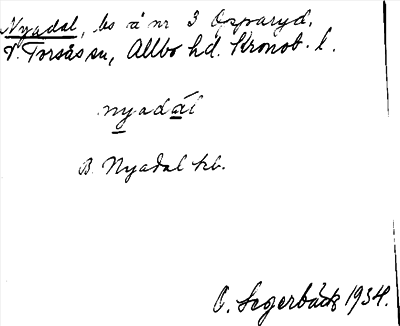 Nyadal, bs å nr 3 Opparyd,
V. Torsås sn, Allbo hd. Kronob. l.
nyadál
B. Nyadal kb.
O. Segerbäck 1934.